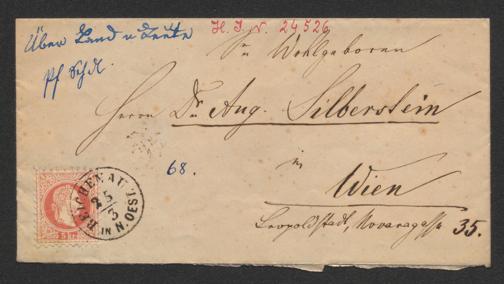 Über Land u Leute
H. I. N. 24526
Sr Wohlgeboren
Herrn Dr Aug. Silberstein
68.
in
Wien
Leopoldstadt, Novaragasse 35.
REICHENAU
25/3
IN N. OEST.
5 Kr